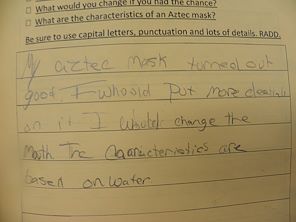 ☐ What would you change if you had the chance?
☐ What are the characteristics of an Aztec mask?
Be sure to use capital letters, punctuation and lots of details. RADD.
My aztec mask turned out
good. I whoould Put more deatails
on it I would change the
Moth The Charicteristics are
based on water